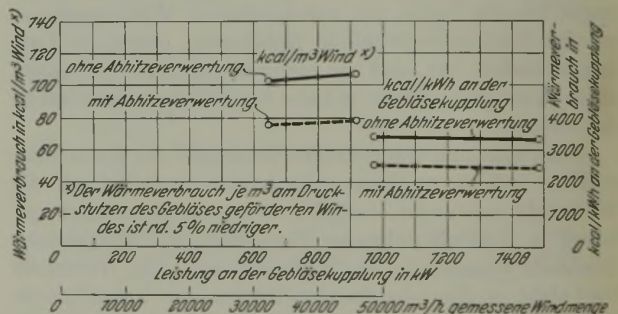 Wärmeverbrauch in kcal/m³ Wind *)
140
120
100
80
60
40
20
0
ohne Abhitzeverwertung
kcal/m³ Wind *)
mit Abhitzeverwertung
kcal/kWh an der
Gebläsekupplung
ohne Abhitzeverwertung
mit Abhitzeverwertung
*) Der Wärmeverbrauch je m³ am Druck-
stutzen des Gebläses geförderten Win-
des ist rd. 5% niedriger.
Wärmever-
brauch in
kcal/kWh an der Gebläsekupplung
4000
3000
2000
1000
0
0 200 400 600 800 1000 1200 1400
Leistung an der Gebläsekupplung in kW
0 10000 20000 30000 40000 50000 m³/h gemessene Windmenge